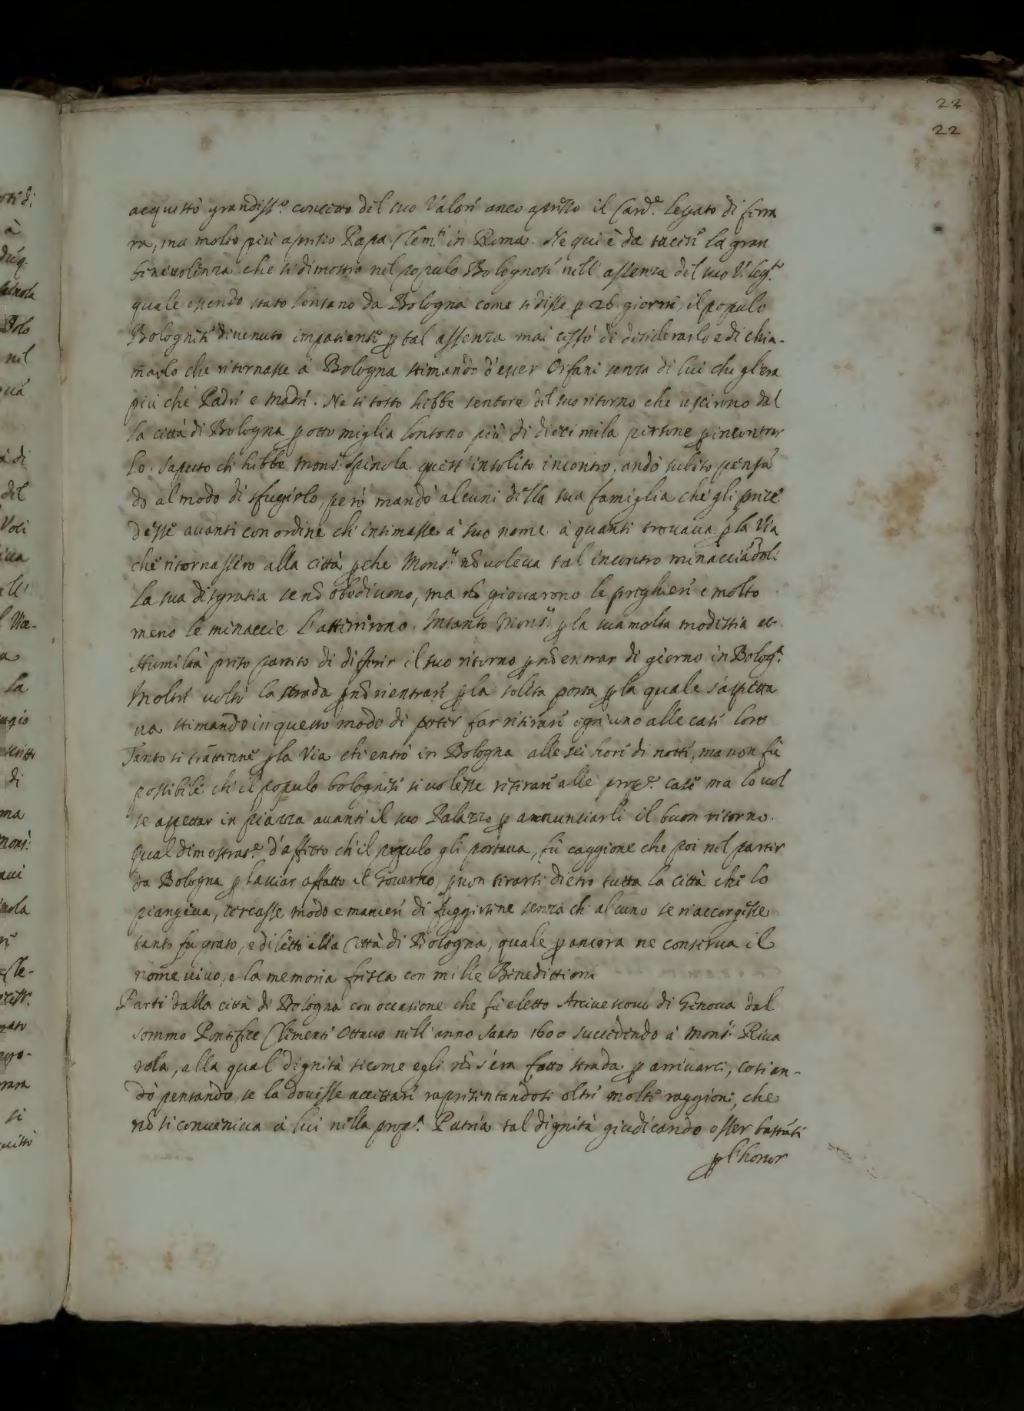 22
22
acquistò grandiss.o concetto del suo Valore anco apresso il Card.e legato di ferra
ra, ma molto più apresso Papa Clem.te in Roma. Ne qui è da tacersi la gran
benevolenza che si dimostrò nel populo Bolognese nell'assenza del suo V. leg.to
quale essendo stato lontano da Bologna come si disse p 26 giorni, il populo
Bolognese divenuto impatiente p tal assenza mai cessò di desiderarlo e di chia-
marlo che ritornasse à Bologna stimando d'esser Orfani senza di lui che gl'era
più che Padre e madre. Ne si tosto hebbe sentore del suo ritorno che uscirono dal
la città di Bologna p otto miglia lontono più di dieci mila persone p incontrar
lo. Saputo ch'hebbe mons.r Spinola quest'insolito incontro, andò subito pensa
do al modo di sfugirlo, però mandò alcuni della sua famiglia che gli prece
desse avanti con ordine ch'intimasse à suo nome à quanti trovava p la Via
che ritornassero alla città p che Mons.r nõ voleva tal incontro minacciãdoli
la sua disgratia se nõ obedivono, ma nõ giovarono le preghiere e molto
meno le minaccie l'atterirono. Intanto Mons.r p la sua molta modestia et
Humiltà prese partito di differir il suo ritorno p nõ entrar di giorno in Bolog.a
Inoltre voltò la strada p nõ rientrare p la solita porta p la quale s'aspetta
va stimando in questo modo di poter far ritirare ogn'uno alle case loro
Tanto si trattenne p la Via ch'entrò in Bologna alle sei hore di notte, ma non fù
possibile ch'il populo bolognese si volesse ritirare alle prop.e case ma lo vol
se aspettar in piazza avanti il suo Palazzo p annunciarli il buon ritorno.
Qual dimostras.e d'affetto ch'il populo gli portava, fù caggione che poi nel partir
da Bologna p lasciar affatto il Governo, p non tirarsi dietro tutta la città che lo
piangeva, cercasse modo e maniere di fuggirsene senza ch'alcuno se n'accorgesse
tanto fu grato, e diletto alla Città di Bologna, quale p ancora ne conserva il
nome vivo, e la memoria fresca con mille Benedittioni
Partì dalla città di Bologna con occasione che fù eletto Arcivescovo di Genova dal
sommo Pontefice Clemente Ottavo nell'anno santo 1600 succedendo à Mons.r Riva
rola, alla qual dignità sicome egli nõ s'era fatto strada p arrivarci, così an-
dò pensando se la dovesse accettare rapresentandosi oltre molte raggioni, che
nõ si conveniva à lui nella prop.a Patria tal dignità giudicando esser bastãti
p l'honor